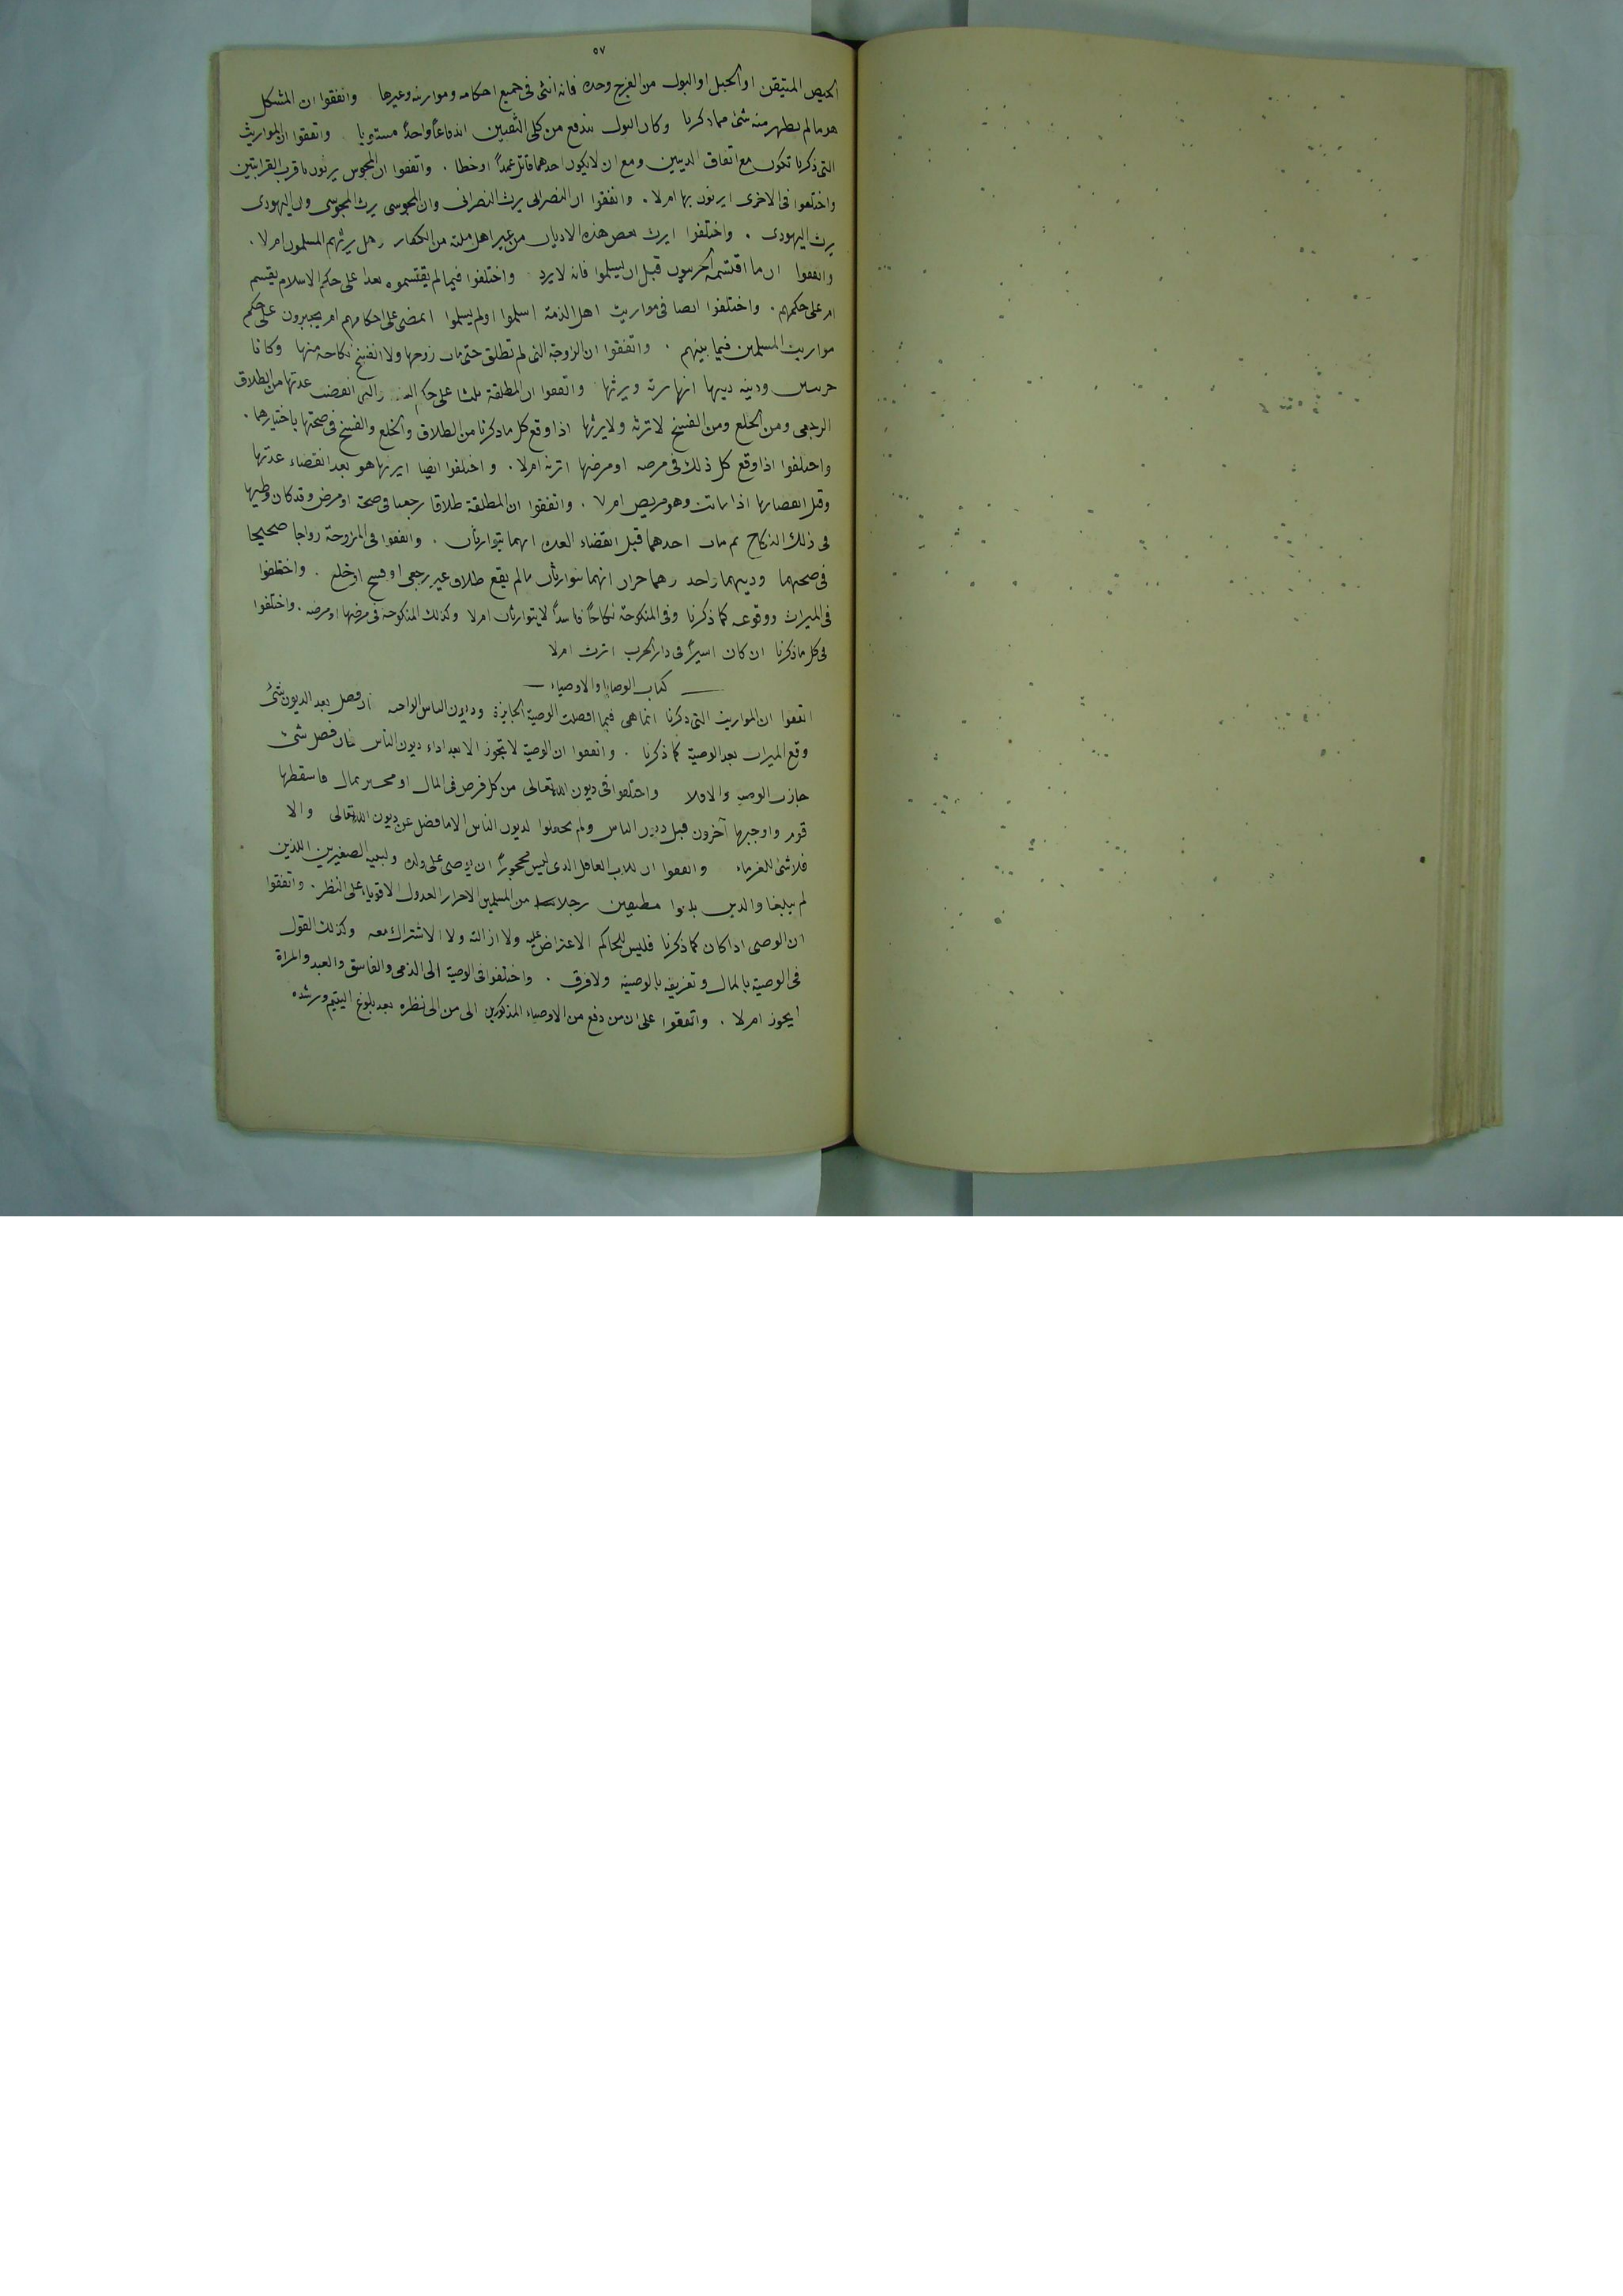 ٥٧
الحيض المتيقن او الحبل او البول من الفرج وحده فانه انثى فى جميع احكامه ومواريثه وغيرها واتفقوا ان المشكل
هو ما لم يظهر منه شئ مما ذكرنا وكان البول يندفع من كلى الثقبين اندفاعاً واحداً مستويا واتفقوا ان المواريث
التى ذكرنا تكون مع اتفاق الدينين ومع ان لا يكون احدهما قاتل عمداً او خطا . واتفقوا ان المجوس يرثون باقرب القرابتين
واختلفوا فى الاخرى ايرثون بها ام لا . واتفقوا ان النصرانى يرث النصرانى وان المجوسى يرث المجوسى وان اليهودى
يرث اليهودى . واختلفوا ايرث بعض هذه الاديان من غير اهل ملته من الكفار وهل يرثهم المسلمون ام لا .
واتفقوا ان ما اقتسمه الحربيون قبل ان يسلموا فانه لا يرد واختلفوا فيما لم يقتسموه بعد اعلى حكم الاسلام يقسم
ام على حكمهم . واختلفوا ايضا فى مواريث اهل الذمة اسلموا او لم يسلموا ايمضى على احكامهم ام يجبرون على حكم
مواريث المسلمين فيما بينهم . واتفقوا ان الزوجة التى لم تطلق حتى مات زوجها ولا انفسخ نكاحه منها وكانا
حرين ودينه دينها انها ترثه ويرثها واتفقوا ان المطلقة ثلثا على حكم السنة والتى انقضت عدتها من الطلاق
الرجعى ومن الخلع ومن الفسخ لا ترثه ولا يرثها اذا وقع كل ما ذكرنا من الطلاق والخلع والفسخ فى صحتها باختيارهما .
واختلفوا اذا وقع كل ذلك فى مرضه او مرضها اترثه ام لا . واختلفوا ايضا ايرثها هو بعد انقضاء عدتها
وقبل انقضائها اذا ماتت وهو مريض ام لا . واتفقوا ان المطلقة طلاقا رجعيا فى صحة او مرض وقد كان وطيها
فى ذلك النكاح ثم مات احدهما قبل انقضاء العدة انهما يتوارثان . واتفقوا فى المزوجة زواجا صحيحا
فى صحتهما ودينهما واحد وهما حران انهما يتوارثان ما لم يقع طلاق غير رجعى او فسخ او خلع . واختلفوا
فى الميراث ووقوعه كما ذكرنا وفى المنكوحة نكاحاً فاسداً لا يتوارثان ام لا وكذلك المنكوحة فى مرضها او مرضه . واختلفوا
فى كل ما ذكرنا ان كان اسيراً فى دار الحرب اترث ام لا
— كتاب الوصايا والاوصياء —
اتفقوا ان المواريث التى ذكرنا انما هى فيما افضلت الوصية الجايزة وديون الناس الواجبة ان فضل بعد الديون شئ
وقع الميراث بعد الوصية كما ذكرنا . واتفقوا ان الوصية لا تجوز الا بعد اداء ديون الناس فان فضل شئ
جازت الوصية والا فلا واختلفوا فى ديون الله تعالى من كل فرض فى المال او مخير بمال فاسقطها
قوم واوجبها آخرون قبل ديون الناس ولم يجعلوا لديون الناس الا ما فضل عن ديون الله تعالى والا
فلا شئ للغرماء واتفقوا ان للاب العاقل الذى ليس محجوراً ان يوصى على ولده ولبنيه الصغيرين اللذين
لم يبلغا والذين بلغوا مطبقين رجلا من المسلمين الاحرار العدول الاقوياء على النظر . واتفقوا
ان الوصى اذا كان كما ذكرنا فليس للحاكم الاعتراض عليه ولا ازالته ولا الاشتراك معه وكذلك القول
فى الوصية بالمال وتفريقه بالوصية ولا فرق . واختلفوا فى الوصية الى الذمى والفاسق والعبد والمراة
ايجوز ام لا . واتفقوا على ان من دفع من الاوصياء المذكورين الى من الى نظره بعد بلوغ اليتيم ورشده